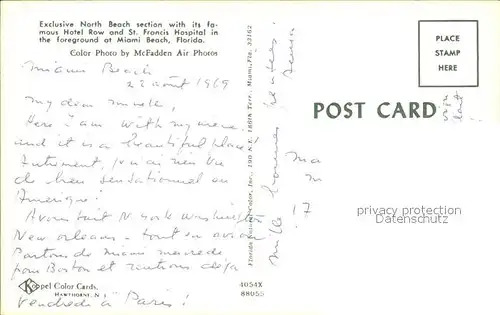 Exclusive North Beach section with its fa-
mous Hotel Row and St. Francis Hospital in
the foreground at Miami Beach, Florida.
Color Photo by McFadden Air Photos
Miami Beach
22 août 1969
My dear
Here I am with my
and it is a beautiful place!
Autrement, je n'ai rien vu
de bien sensationnel en
Amérique!
Avons fait N. York Washington
New Orleans - tout en avion
Partons de Miami mercredi
pour Boston et rentrons déjà
vendredi à Paris!
Koppel Color Cards.
Hawthorne, N. J.
4054X
88055
Florida Natural Color, Inc., 190 N.E. 186th Terr., Miami, Fla. 33162
mille
17
POST CARD
PLACE
STAMP
HERE
privacy protection
Datenschutz